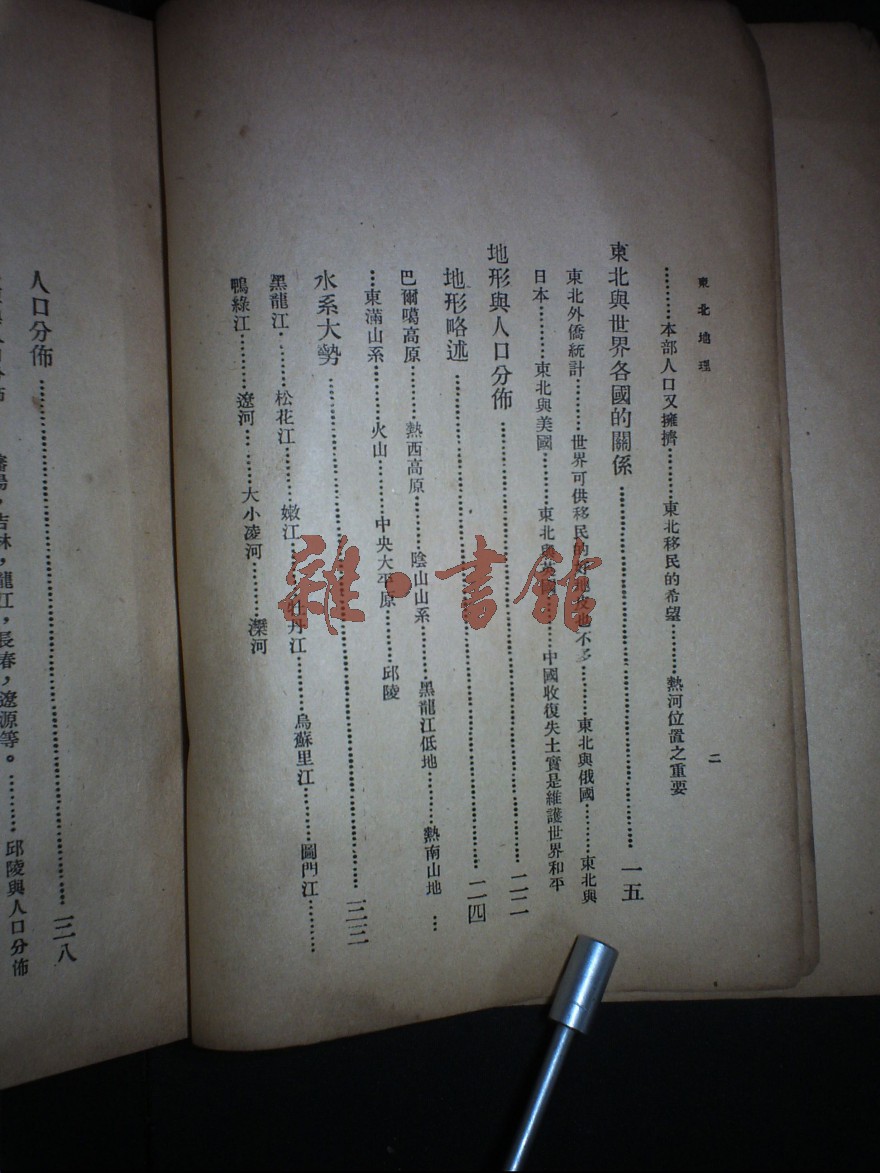 東北地理
二
………本部人口又擁擠………東北移民的希望………熱河位置之重要
東北與世界各國的關係………一五
東北外僑統計………世界可供移民的好地皮也不多………東北與俄國………東北與
日本………東北與美國………東北與英國………中國收復失土實是維護世界和平
地形與人口分佈………二二
地形略述………二四
巴爾噶高原………熱西高原………陰山山系………黑龍江低地………熱南山地…
…東滿山系………火山………中央大平原………邱陵
水系大勢………三三
黑龍江………松花江………嫩江………牡丹江………烏蘇里江………圖門江………
鴨綠江………遼河………大小凌河………灤河
人口分佈………三八
與人口分佈 瀋陽，吉林，龍江，長春，遼源等。………邱陵與人口分佈
雜·書館